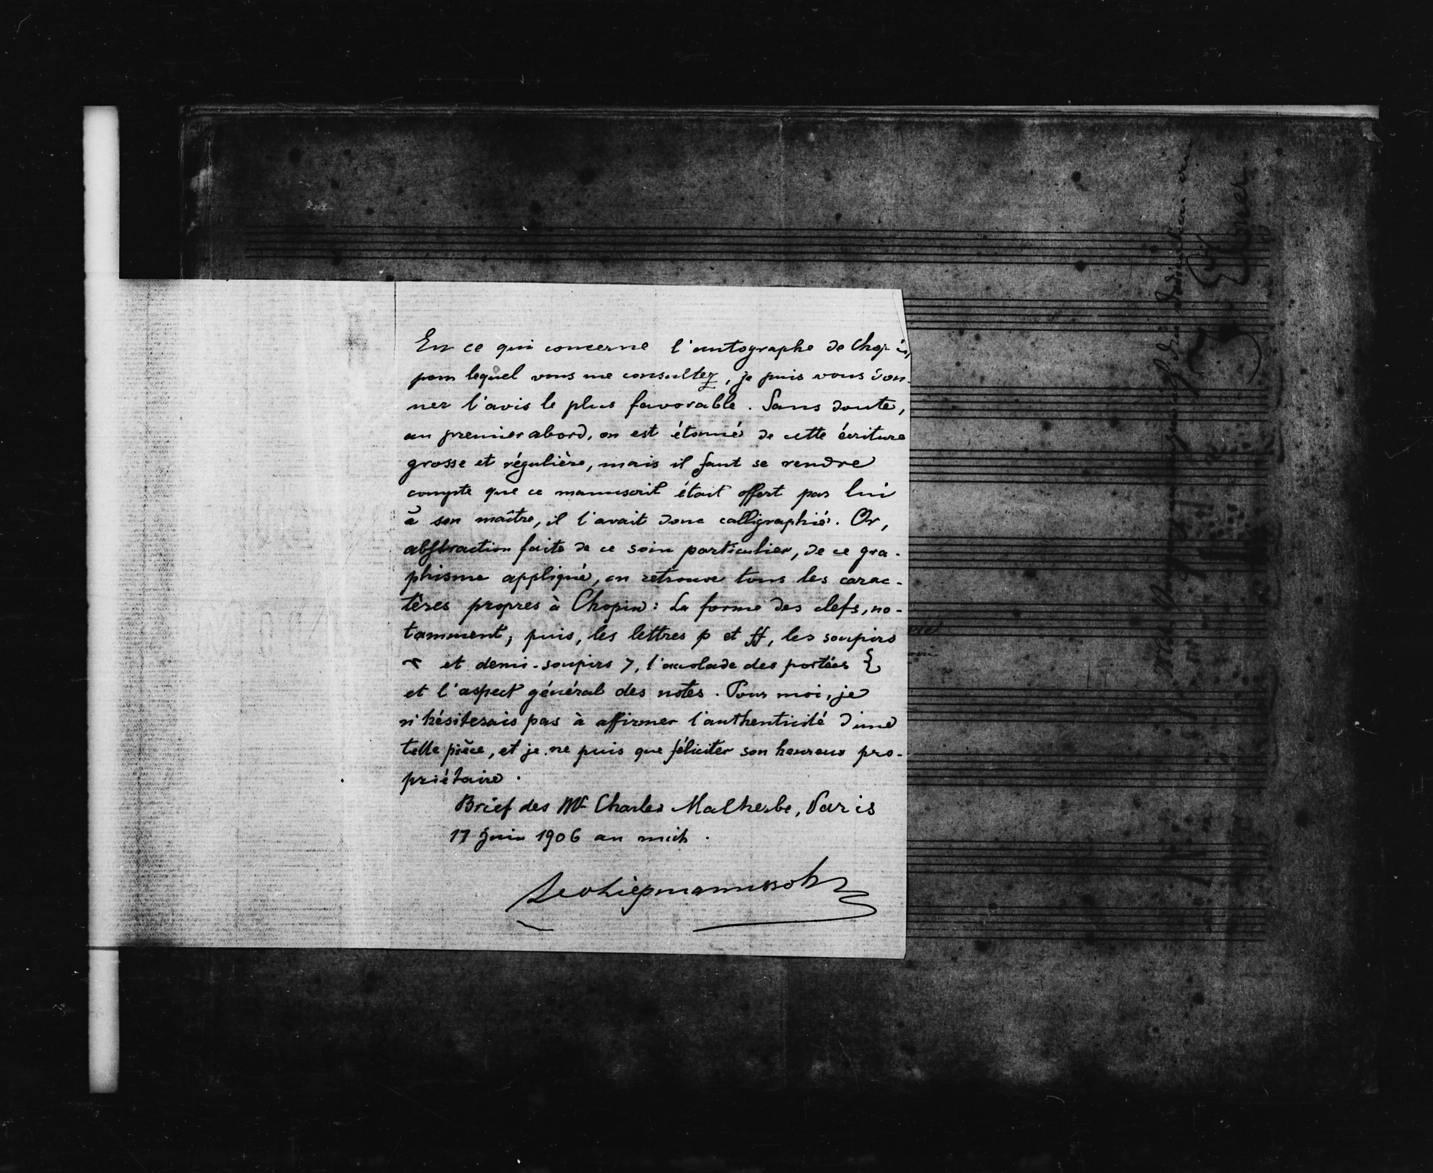 En ce qui concerne l'autographe de Chopin,
pour lequel vous me consultez, je puis vous don-
ner l'avis le plus favorable. Sans doute,
au premier abord, on est étonné de cette écriture
grosse et régulière, mais il faut se rendre
compte que ce manuscrit était offert par lui
à son maître, il l'avait donc calligraphié. Or,
abstraction faite de ce soin particulier, de ce gra-
phisme appliqué, on retrouve tous les carac-
tères propres à Chopin: La forme des clefs, no-
tamment, puis, les lettres p et ff, les soupirs
et demi-soupirs 7, l'accolade des portées {
et l'aspect général des notes. Pour moi, je
n'hésiterais pas à affirmer l'authenticité d'une
telle pièce, et je ne puis que féliciter son heureux pro-
priétaire.
Brief des Mr Charles Malherbe, Paris
17 Juin 1906 an mich.
Leo Liepmannssohn